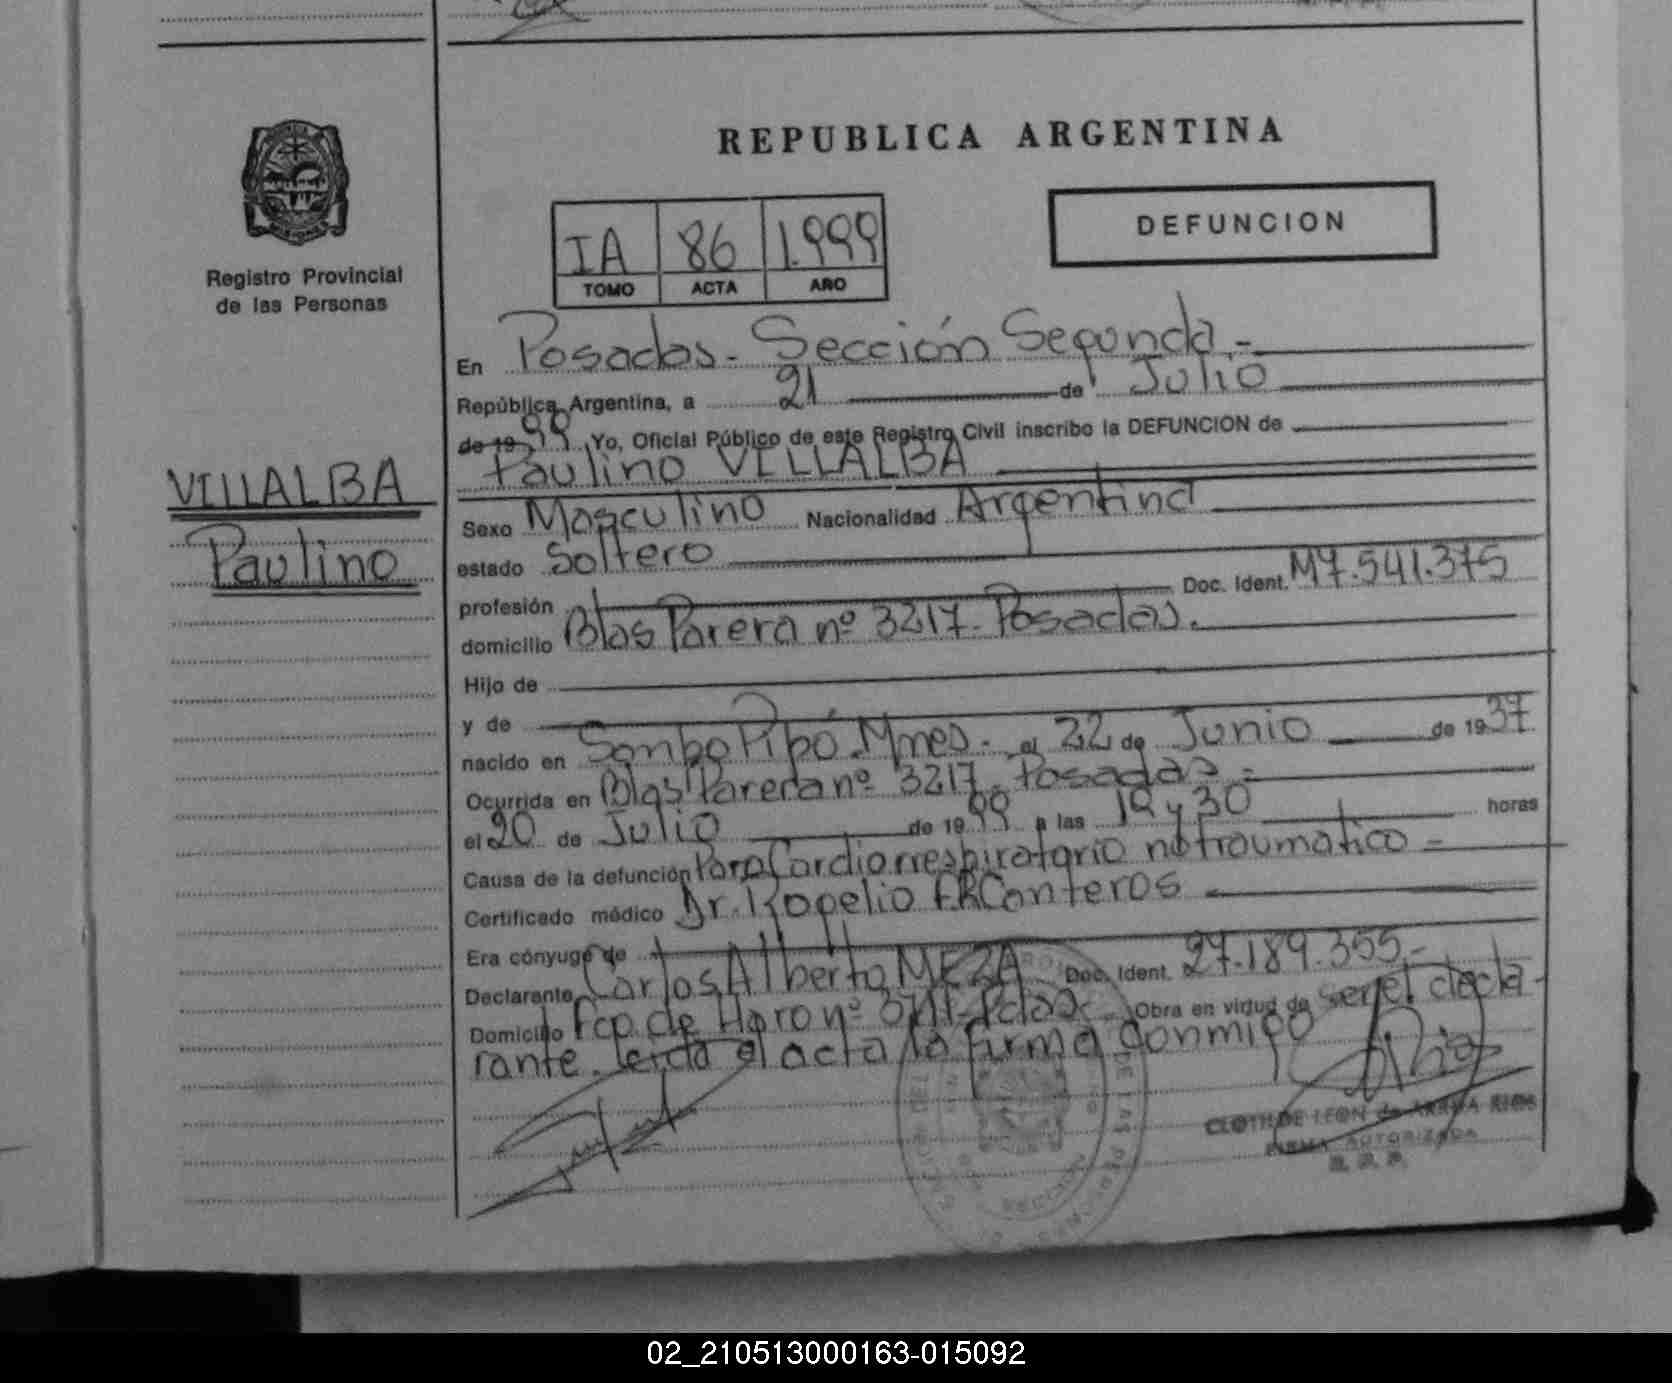 REPUBLICA ARGENTINA
IA 86 1.999
TOMO ACTA AÑO
DEFUNCION
Registro Provincial
de las Personas
VILLALBA
Paulino
En Posadas - Sección Segunda.-
República Argentina, a 21 de Julio
de 1999. Yo, Oficial Público de este Registro Civil inscribo la DEFUNCION de
Paulino VILLALBA
Sexo Masculino Nacionalidad Argentina
estado Soltero
profesión Doc. Ident. M7.541.375
domicilio Blas Parera nº 3217- Posadas.
Hijo de
y de
nacido en Mnes. el 22 de Junio de 1937
Ocurrida en Blas Parera nº 3217. Posadas -
el 20 de Julio de 1999 a las 19 y 30 horas
Causa de la defunción Paro Cardiorrespiratorio no traumatico -
Certificado médico Dr. Rogelio Canteros
Era cónyuge de
Declarante Carlos Alberto MEZA Doc. Ident. 27.189.355.-
Domicilio Fco. de Haro nº Obra en virtud de ser el decla-
rante. Leida el acta la firma conmigo
CLOTILDE LEON de ARRUA RIOS
FIRMA AUTORIZADA
02_210513000163-015092